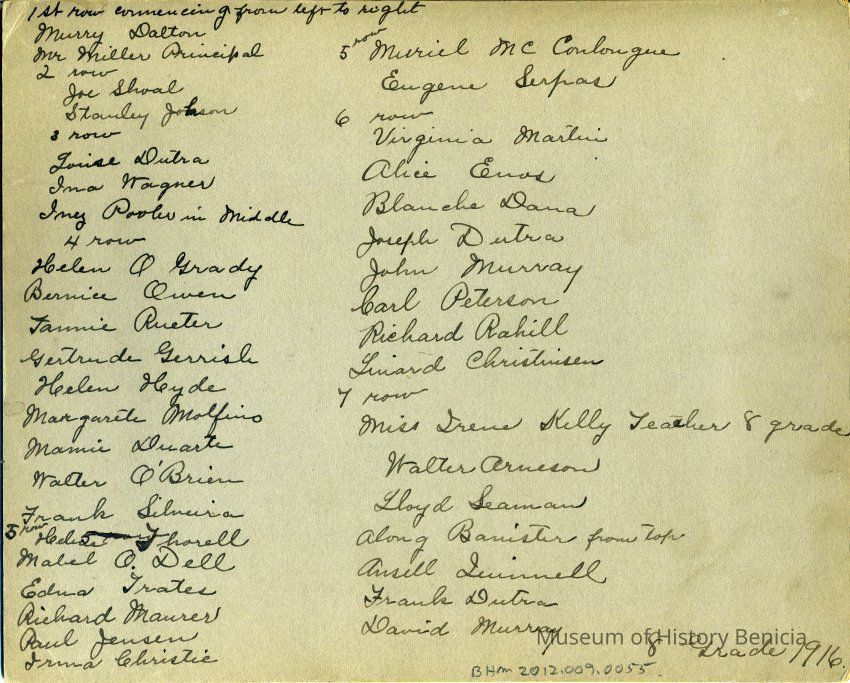 1st row commencing from left to right
Murry Dalton
Mr Miller Principal
2 row
Joe Shoal
Stanley Johson
3 row
Louise Dutra
Ina Wagner
Inez Pooler in Middle
4 row
Helen O Grady
Bernice Owen
Fannie Rueter
Gertrude Gerrish
Helen Hyde
Margarete Molfino
Mamie Duarte
Walter O'Brien
Frank Silveira
5 row
Thorell
Mabel O. Dell
Edna Trates
Richard Maurer
Paul Jensen
Irma Christie
5 row Muriel Mc Conlongue
Eugene Serpas
6 row
Virginia Martin
Alice Enos
Blanche Dana
Joseph Dutra
John Murray
Carl Peterson
Richard Rahill
Linard Christinsen
7 row
Miss Irene Kelly Teacher 8 grade
Walter Arneson
Lloyd Seaman
Along Banister from top
Ansell Quinnell
Frank Dutra
David Murray
8 Grade 1916.
Museum of History Benicia
BHM 2012.009.0055.